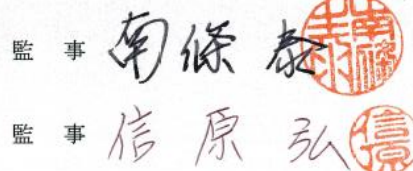 監事 南條 泰
監事 信原 弘